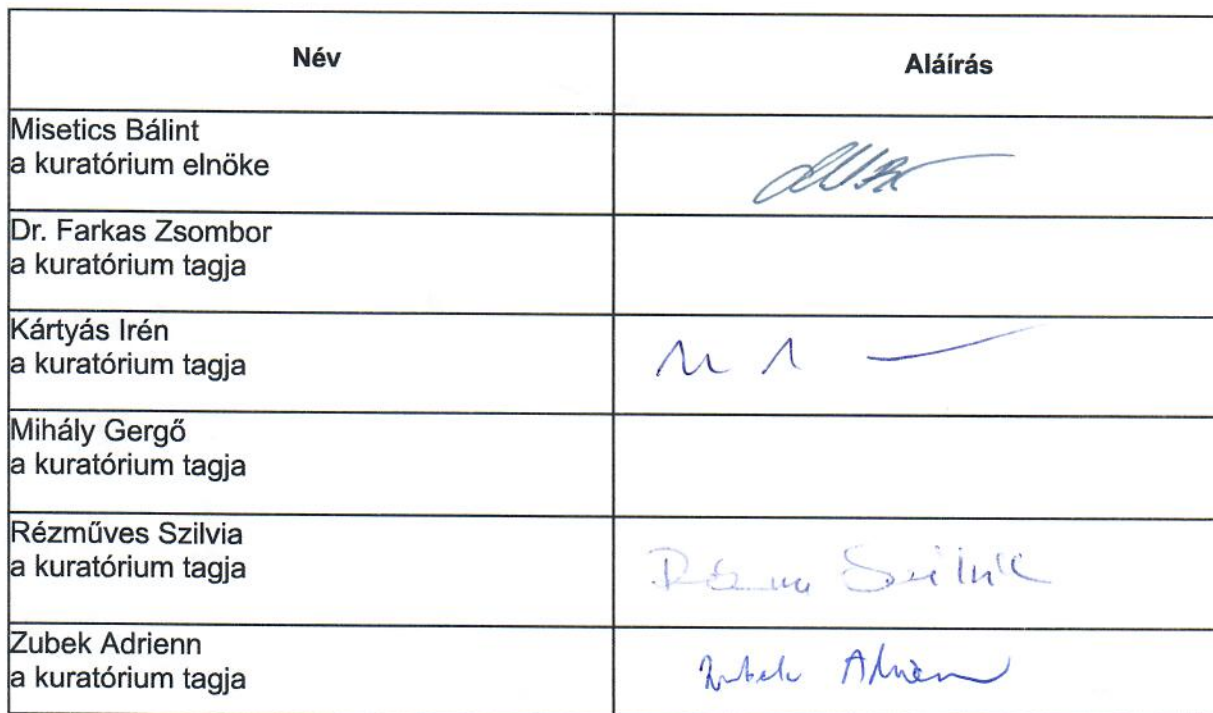 Név
Aláírás
Misetics Bálint
a kuratórium elnöke
Dr. Farkas Zsombor
a kuratórium tagja
Kártyás Irén
a kuratórium tagja
Mihály Gergő
a kuratórium tagja
Rézműves Szilvia
a kuratórium tagja
Zubek Adrienn
a kuratórium tagja
Zubek Adrienn